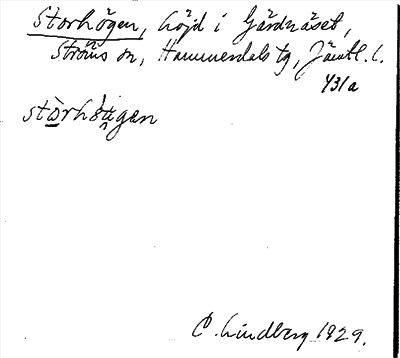 Storhögen, höjd i Gärdnäset,
Ströms sn, Hammerdals tg, Jämtl. l.
431a
stòrhö́ugen
C. Lindberg 1929.